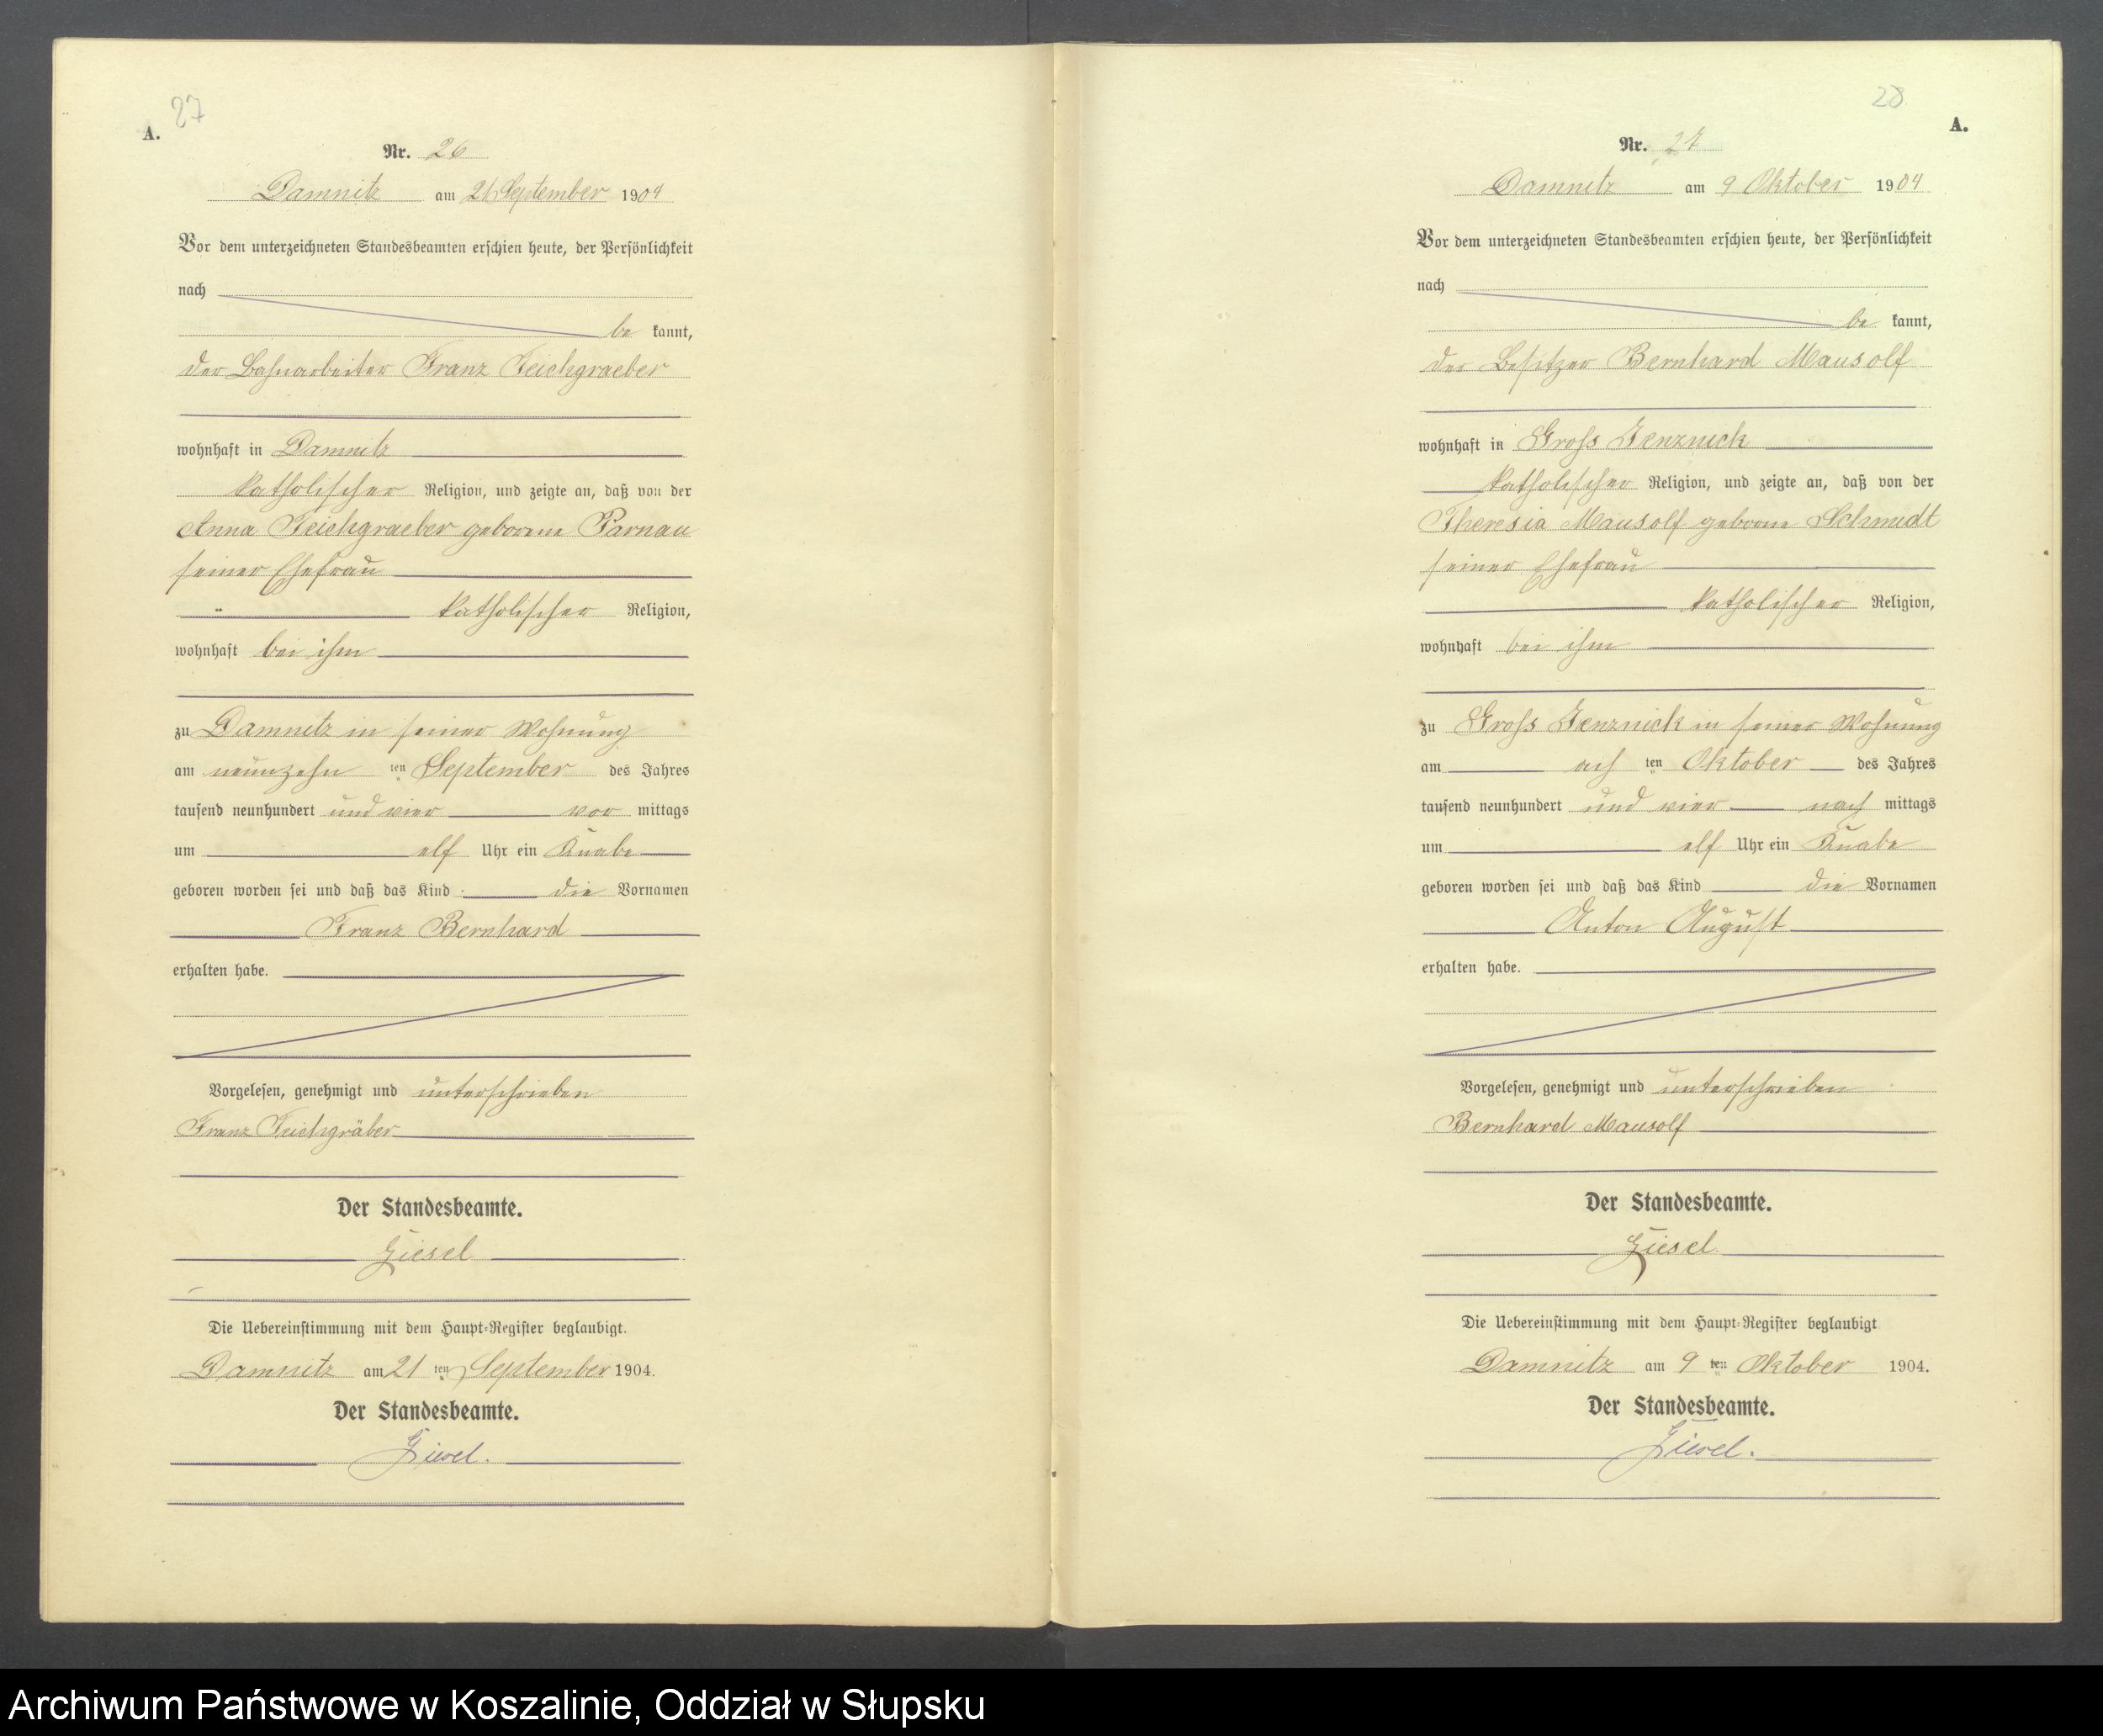 27
A.
Nr. 26
Damnitz am 21 September 1904
Vor dem unterzeichneten Standesbeamten erschien heute, der Persönlichkeit
nach
be kannt,
der Bahnarbeiter Franz Teichgraeber
wohnhaft in Damnitz
katholischer Religion, und zeigte an, daß von der
Anna Teichgraeber geborene Parnau
seiner Ehefrau
katholischer Religion,
wohnhaft bei ihm
zu Damnitz in seiner Wohnung
am neunzehn ten September des Jahres
tausend neunhundert und vier vor mittags
um elf Uhr ein Knabe
geboren worden sei und daß das Kind die Vornamen
Franz Bernhard
erhalten habe.
Vorgelesen, genehmigt und unterschrieben
Franz Teichgräber
Der Standesbeamte.
Giesel
Die Uebereinstimmung mit dem Haupt-Register beglaubigt.
Damnitz am 21 ten September 1904.
Der Standesbeamte.
Giesel.
28
A.
Nr. 27
Damnitz am 9 Oktober 1904
Vor dem unterzeichneten Standesbeamten erschien heute, der Persönlichkeit
nach
be kannt,
der Besitzer Bernhard Mausolf
wohnhaft in Gross Jenznick
katholischer Religion, und zeigte an, daß von der
Theresia Mausolf geborne Schmidt
seiner Ehefrau
katholischer Religion,
wohnhaft bei ihm
zu Gross Jenznick in seiner Wohnung
am ach ten Oktober des Jahres
tausend neunhundert und vier nach mittags
um elf Uhr ein Knabe
geboren worden sei und daß das Kind die Vornamen
Anton August
erhalten habe.
Vorgelesen, genehmigt und unterschrieben
Bernhard Mausolf
Der Standesbeamte.
Giesel.
Die Uebereinstimmung mit dem Haupt-Register beglaubigt
Damnitz am 9 ten Oktober 1904.
Der Standesbeamte.
Giesel.
Archiwum Państwowe w Koszalinie, Oddział w Słupsku